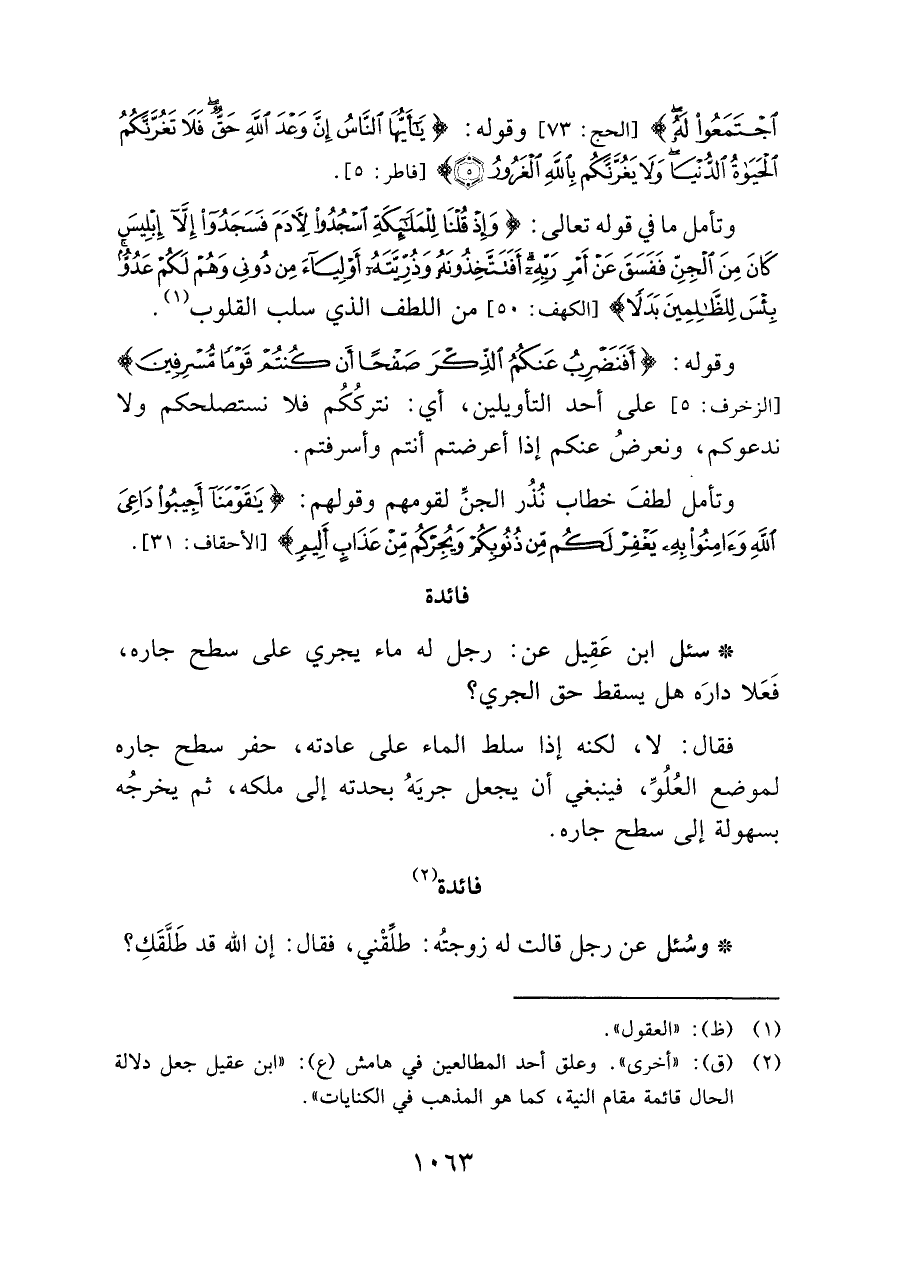 ٱجْتَمَعُوا۟ لَهُۥ ۖ﴾ [الحج: ٧٣] وقوله: ﴿يَٰٓأَيُّهَا ٱلنَّاسُ إِنَّ وَعْدَ ٱللَّهِ حَقٌّ ۖ فَلَا تَغُرَّنَّكُمُ
ٱلْحَيَوٰةُ ٱلدُّنْيَا ۖ وَلَا يَغُرَّنَّكُم بِٱللَّهِ ٱلْغَرُورُ ۝٥﴾ [فاطر: ٥].
وتأمل ما في قوله تعالى: ﴿وَإِذْ قُلْنَا لِلْمَلَٰٓئِكَةِ ٱسْجُدُوا۟ لِءَادَمَ فَسَجَدُوٓا۟ إِلَّآ إِبْلِيسَ
كَانَ مِنَ ٱلْجِنِّ فَفَسَقَ عَنْ أَمْرِ رَبِّهِۦٓ ۗ أَفَتَتَّخِذُونَهُۥ وَذُرِّيَّتَهُۥٓ أَوْلِيَآءَ مِن دُونِى وَهُمْ لَكُمْ عَدُوٌّۢ ۚ
بِئْسَ لِلظَّٰلِمِينَ بَدَلًا﴾ [الكهف: ٥٠] من اللطف الذي سلب القلوب(١).
وقوله: ﴿أَفَنَضْرِبُ عَنكُمُ ٱلذِّكْرَ صَفْحًا أَن كُنتُمْ قَوْمًا مُّسْرِفِينَ﴾
[الزخرف: ٥] على أحد التأويلين، أي: نتركُكُم فلا نستصلحكم ولا
ندعوكم، ونعرضُ عنكم إذا أعرضتم أنتم وأسرفتم.
وتأمل لطفَ خطاب نُذُر الجنِّ لقومهم وقولهم: ﴿يَٰقَوْمَنَآ أَجِيبُوا۟ دَاعِىَ
ٱللَّهِ وَءَامِنُوا۟ بِهِۦ يَغْفِرْ لَكُم مِّن ذُنُوبِكُمْ وَيُجِرْكُم مِّنْ عَذَابٍ أَلِيمٍ﴾ [الأحقاف: ٣١].
فائدة
* سئل ابن عَقِيل عن: رجل له ماء يجري على سطح جاره،
فَعَلا دارَه هل يسقط حق الجري؟
فقال: لا، لكنه إذا سلط الماء على عادته، حفر سطح جاره
لموضع العُلُوِّ، فينبغي أن يجعل جريَهُ بحدته إلى ملكه، ثم يخرجُه
بسهولة إلى سطح جاره.
فائدة(٢)
* وسُئل عن رجل قالت له زوجتُه: طلِّقْني، فقال: إن الله قد طَلَّقَكِ؟
(١) (ظ): «العقول».
(٢) (ق): «أخرى». وعلق أحد المطالعين في هامش (ع): «ابن عقيل جعل دلالة
الحال قائمة مقام النية، كما هو المذهب في الكنايات».
١٠٦٣